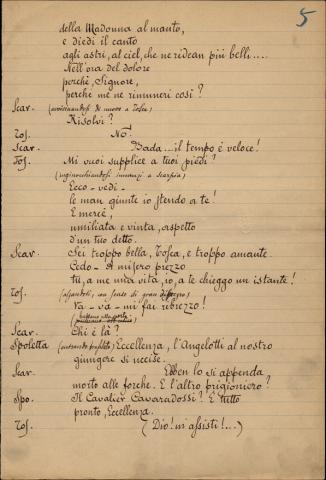 5
della Madonna al manto,
e diedi il canto
agli astri, al ciel, che ne ridean più belli....
Nell'ora del dolore
perchè, Signore,
perchè me ne rimuneri così?
Scar. (avvicinandosi di nuovo a Tosca)
Risolvi?
Tos. No!
Scar. Bada... il tempo è veloce!
Tos. Mi vuoi supplice a' tuoi piedi?
(inginocchiandosi innanzi a Scarpia)
Ecco - vedi -
le man giunte io stendo a te!
E mercè,
umiliata e vinta, aspetto
d'un tuo detto.
Scar. Sei troppo bella, Tosca, e troppo amante.
Cedo - A misero prezzo
tu, a me una vita, io, a te chieggo un istante!
Tos. (alzandosi, con senso di gran disprezzo)
Va - va - mi fai ribrezzo!
Scar. Chi è là?
Spoletta (entrando) Eccellenza, l'Angelotti al nostro
giungere si uccise.
Scar. Ebben lo si appenda
morto alle forche. E l'altro prigioniero?
Spo. Il Cavalier Cavaradossi? È tutto
pronto, Eccellenza.
Tos. (Dio! m'assisti!...)